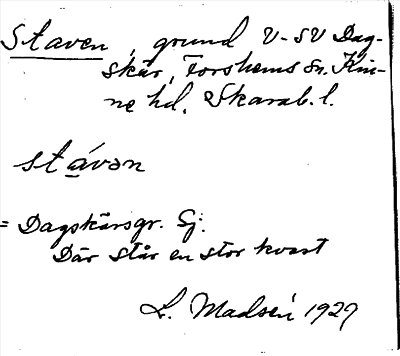 Staven, grund V-SV Dag-
skär, Forshems sn. Kin-
ne hd, Skarab. l.
stávən
= Dagskärsgr. Sj.
Där står en stor kvast
L. Madsén 1929